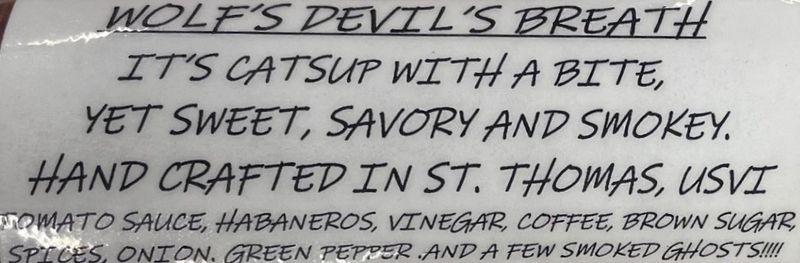 WOLF'S DEVIL'S BREATH
IT'S CATSUP WITH A BITE,
YET SWEET, SAVORY AND SMOKEY.
HAND CRAFTED IN ST. THOMAS, USVI
TOMATO SAUCE, HABANEROS, VINEGAR, COFFEE, BROWN SUGAR,
SPICES, ONION. GREEN PEPPER .AND A FEW SMOKED GHOSTS!!!!